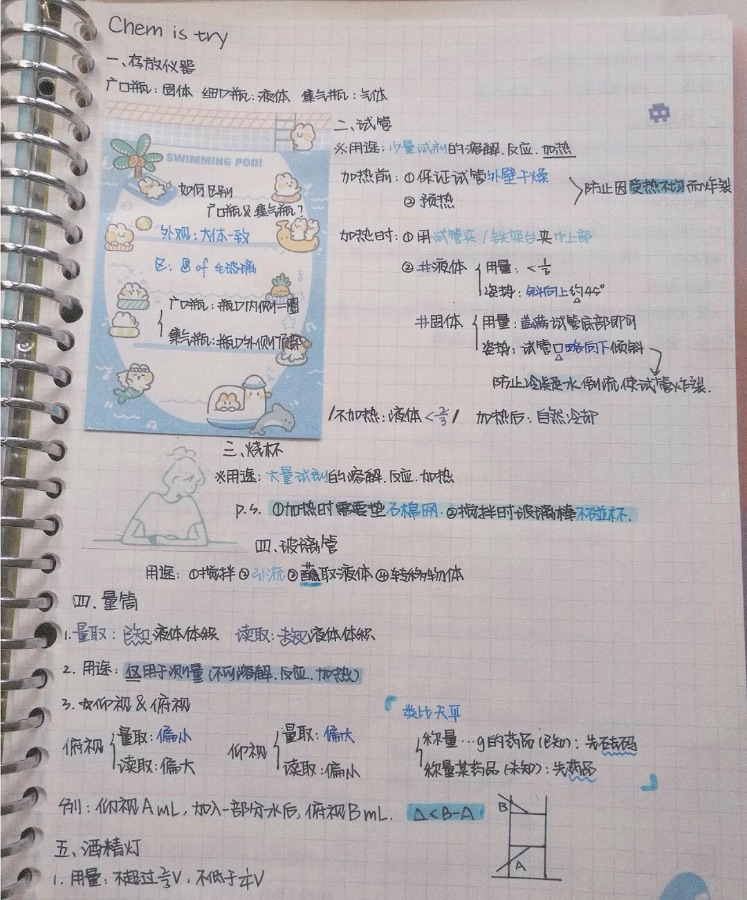 Chem is try
一、存放仪器
广口瓶：固体 细口瓶：液体 集气瓶：气体
SWIMMING POOL
如何区别
广口瓶 & 集气瓶？
外观：大体一致
区：圆 of 毛玻璃
广口瓶：瓶口内侧一圈
集气瓶：瓶口外侧顶部
二、试管
※用途：少量试剂的溶解.反应.加热
加热前：①保证试管外壁干燥
②预热
防止因受热不均而炸裂
加热时：①用试管夹/铁架台夹中上部
②#液体 用量：<⅓
姿势：斜向上约45°
#固体 用量：盖满试管底部即可
姿势：试管口略向下倾斜
防止冷凝水倒流使试管炸裂.
/不加热：液体<⅔/ 加热后：自然冷却
三、烧杯
※用途：大量试剂的溶解.反应.加热
P.S. ①加热时需要垫石棉网.②搅拌时玻璃棒不碰杯.
四、玻璃管
用途：①搅拌②引流③蘸取液体④转移物体
四、量筒
1.量取：已知液体体积 读取：未知液体体积
2.用途：仅用于测量(不可溶解.反应.加热)
3.☆仰视&俯视
俯视 量取：偏小
读取：偏大
仰视 量取：偏大
读取：偏小
类比天平
称量…g的药品(已知)：先砝码
称量某药品(未知)：先药品
例：仰视A mL，加入一部分水后，俯视B mL. △<B-A
B
A
五、酒精灯
1.用量：不超过⅔V，不低于¼V